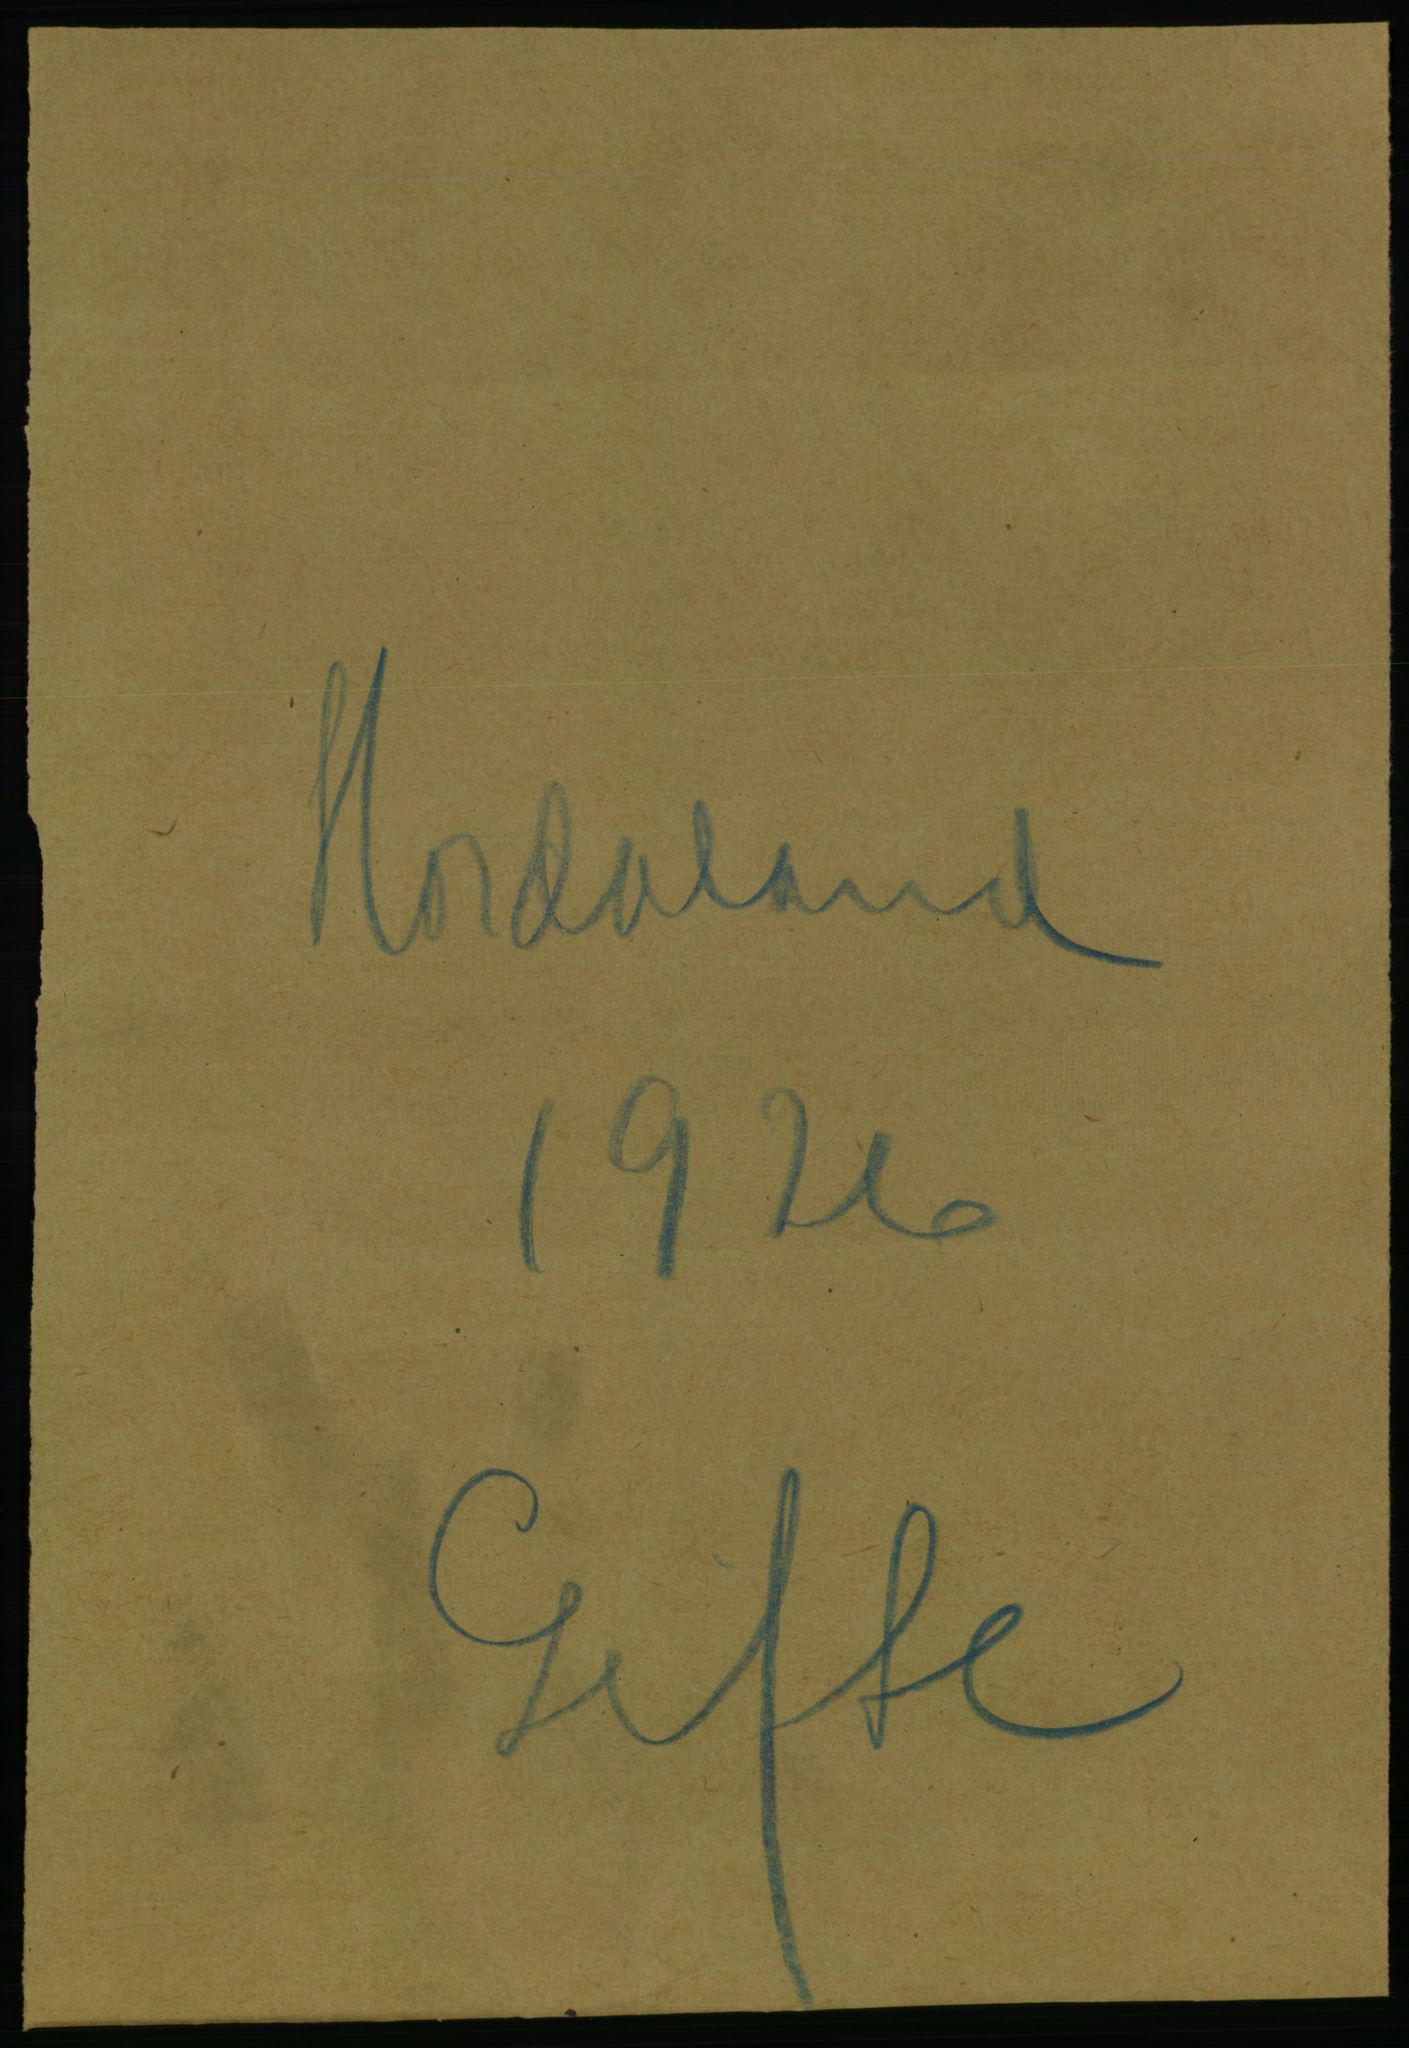 Hordaland
1926
Gifte